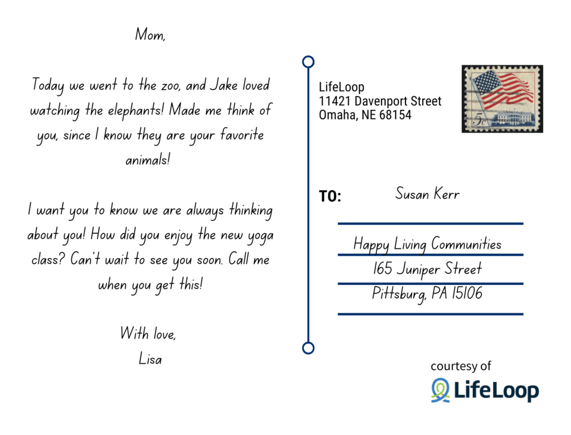 Mom,
Today we went to the zoo, and Jake loved
watching the elephants! Made me think of
you, since I know they are your favorite
animals!
I want you to know we are always thinking
about you! How did you enjoy the new yoga
class? Can't wait to see you soon. Call me
when you get this!
With love,
Lisa
LifeLoop
11421 Davenport Street
Omaha, NE 68154
5¢
TO:
Susan Kerr
Happy Living Communities
165 Juniper Street
Pittsburg, PA 15106
courtesy of
LifeLoop